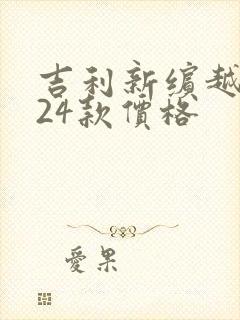 吉利新缤越
24款價格
愛果